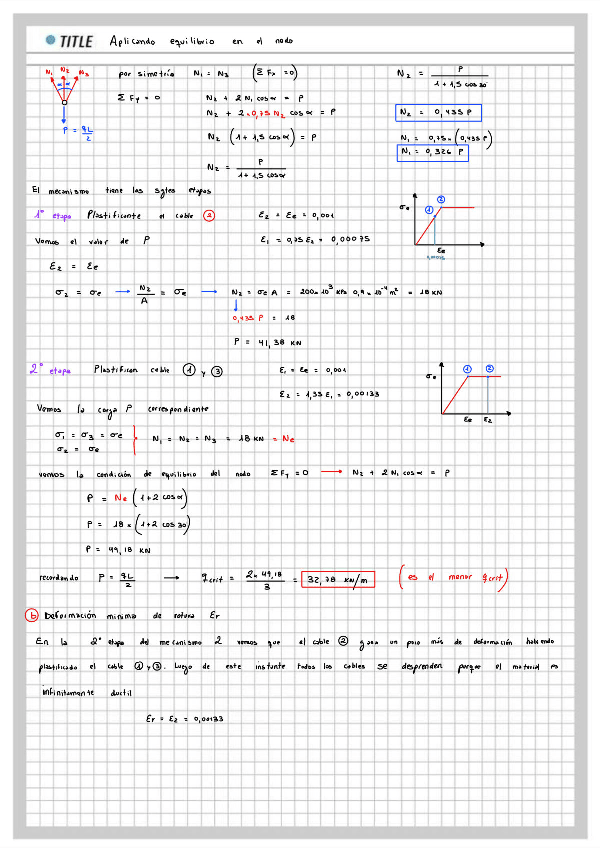 TITLE Aplicando equilibrio en el nodo
N₁ N₂ N₃
α α
P = qL/2
por simetría N₁ = N₃ (ΣFx = 0)
ΣFy = 0 N₂ + 2N₁ cos α = P
N₂ + 2·0,75 N₂ cos α = P
N₂ (1 + 1,5 cos α) = P
N₂ = P / (1 + 1,5 cos α)
N₂ = P / (1 + 1,5 cos 30)
N₂ = 0,435 P
N₁ = 0,75 × (0,435 P)
N₁ = 0,326 P
El mecanismo tiene las sgtes etapas
1° etapa Plastificante el cable ② ε₂ = εe = 0,001
Veamos el valor de P ε₁ = 0,75 ε₂ = 0,00075
σe ① ② εe
ε₂ = εe
σ₂ = σe → N₂/A = σe → N₂ = σe A = 200×10³ KPa 0,9×10⁻⁴ m² = 18 KN
0,435 P = 18
P = 41,38 KN
2° etapa Plastifican cable ① y ③ ε₁ = εe = 0,001
ε₂ = 1,33 ε₁ = 0,00133
σe ① ② εe ε₂
Veamos la carga P correspondiente
σ₁ = σ₃ = σe
σ₂ = σe
N₁ = N₂ = N₃ = 18 KN = Ne
veamos la condición de equilibrio del nodo ΣFy = 0 → N₂ + 2N₁ cos α = P
P = Ne (1 + 2 cos α)
P = 18 × (1 + 2 cos 30)
P = 49,18 KN
recordando P = qL/2 → qcrit = 2×49,18 / 3 = 32,78 KN/m (es el menor qcrit)
ⓑ Deformación mínima de rotura εr
En la 2° etapa del mecanismo 2 vemos que el cable ② gana un poco más de deformación habiendo
plastificado el cable ① y ③. Luego de este instante todos los cables se desprenden porque el material es
infinitamente ductil
εr = ε₂ = 0,00133